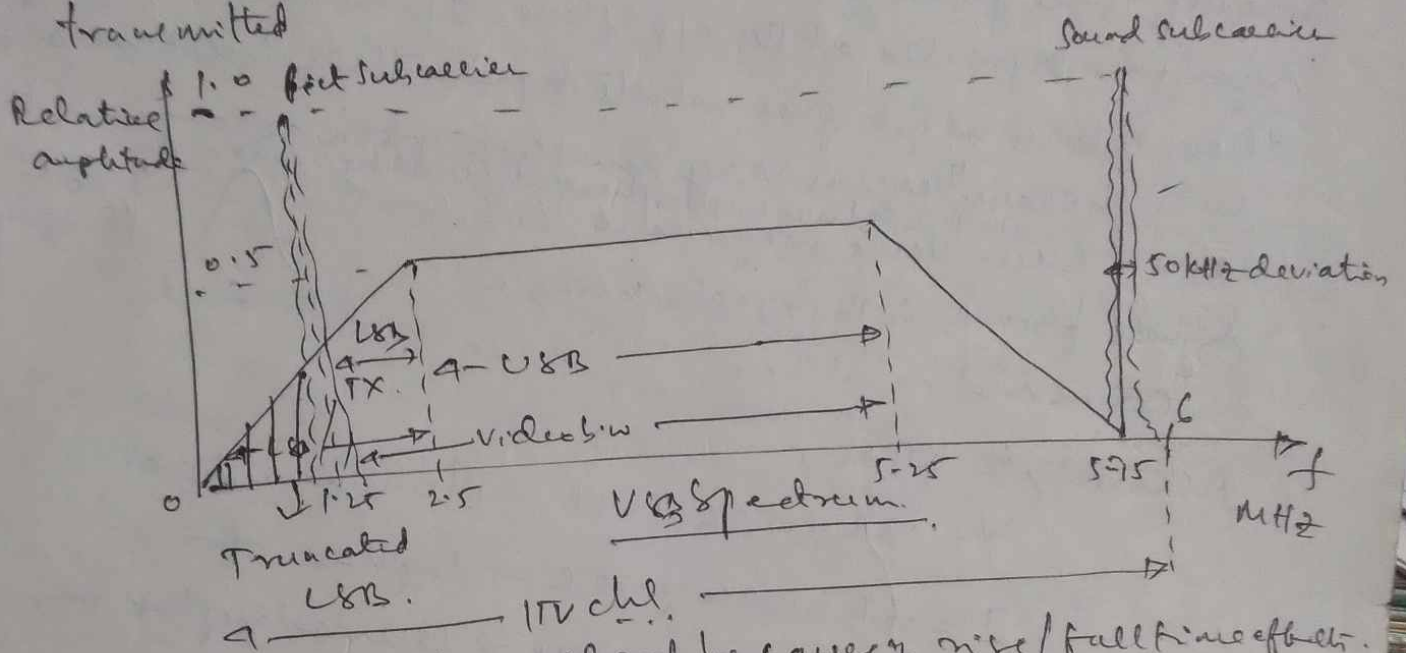 transmitted
Sound Subcarrier
1.0 pict Subcarrier
Relative
amplitude
0.5
50 kHz deviation
LSB
TX.
USB
Video b.w
6
0
1.25
2.5
5.25
5.75
f
MHz
VSB Spectrum.
Truncated
LSB.
1 TV chl.
rise/fall time effects.